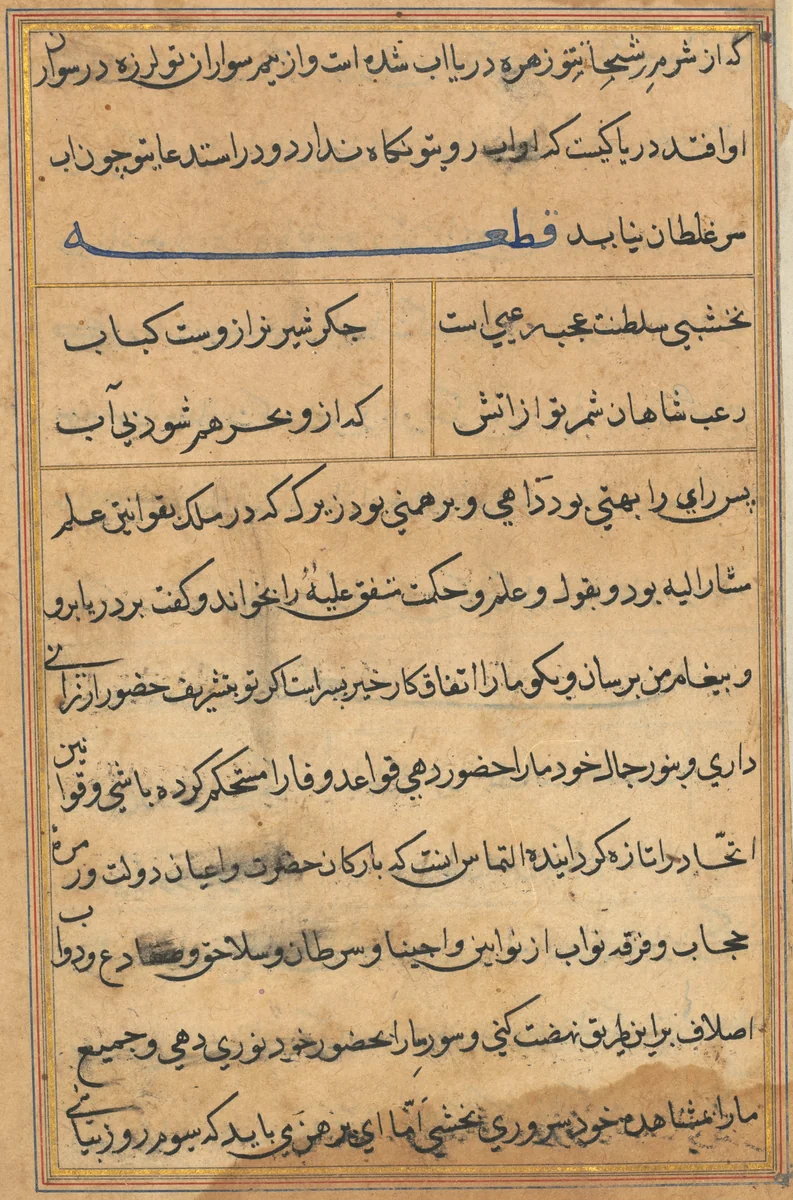 که از شرم رشحات تو زهره دریا اب شده است و از بیم سواران تو لرزه در سواران
او افتد دریا کیست که او اب روی تو نکاه ندارد و در استدعای تو چون اب
سر غلطان نیاید قطعه
نخشبی سلطنت عجب رعبی است
جکر شیر نر ازوست کباب
رعب شاهان شمر تو از اتش
که ازو بحر هم شود بی آب
پس رای را بهتی بود داهی و برهمنی بود زیرک که در ملک بقوانین علم
مشار الیه بود و بقول و علم و حکمت متفق علیه را بخواند و کفت بر دریا برو
و پیغام من برسان و بکو ما را اتفاق کار خیر پسر است اکر تو بتشریف حضور ارزانی
داری و بنور جمال خود ما را حضور دهی قواعد وفا را مستحکم کرده باشی و قوانین
اتحاد را تازه کردانیده التماس اینست که بارکان حضرت و اعیان دولت و زمره
حجاب و فرقه نواب از نوابین و احینا و سرطان و سلاحق و ضفادع و دواب
اصلاف براین طریق نهضت کنی و سور ما را بحضور خود نوری دهی و جمیع
ما را بمشاهده خود سروری بخشی اما ای برهمن می باید که سیوم روز بیائی